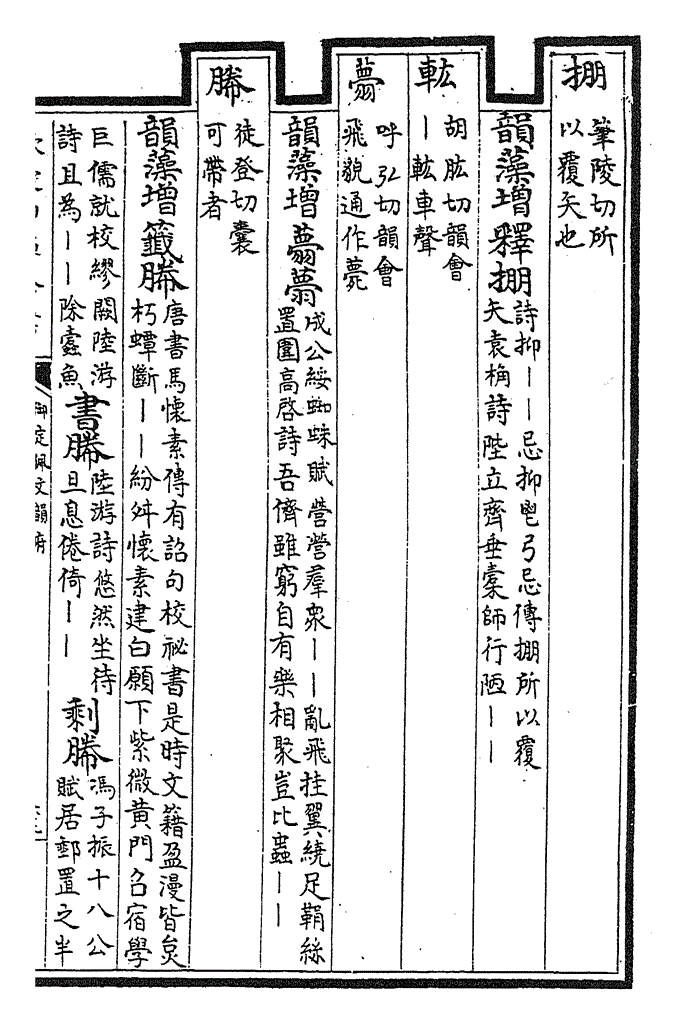 掤
筆陵切所
以覆矢也
韻藻增釋掤
詩抑丨丨忌抑鬯弓忌傳掤所以覆
矢袁桷詩陛立齊垂橐師行陋丨丨
䡏
胡肱切韻會
丨䡏車聲
呼弘切韻會
飛貌通作薨
韻藻增
成公綏蜘蛛賦營營羣衆丨丨亂飛挂翼繞足鞙絲
置圍高啓詩吾儕雖窮自有樂相聚豈比蟲丨丨
幐
徒登切囊
可帶者
韻藻增籤幐
唐書馬懷素傳有詔句校祕書是時文籍盈漫皆炱
朽蟫斷丨丨紛舛懷素建白願下紫微黄門召宿學
巨儒就校繆闕陸游
詩且為丨丨除蠹魚
書幐
陸游詩悠然坐待
旦息倦倚丨丨
剩幐
馮子振十八公
賦居郵置之半
御定佩文韻府